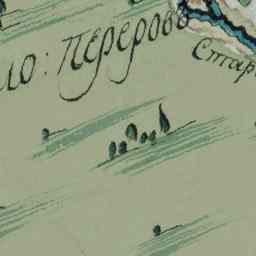 ло: перерово
Стар